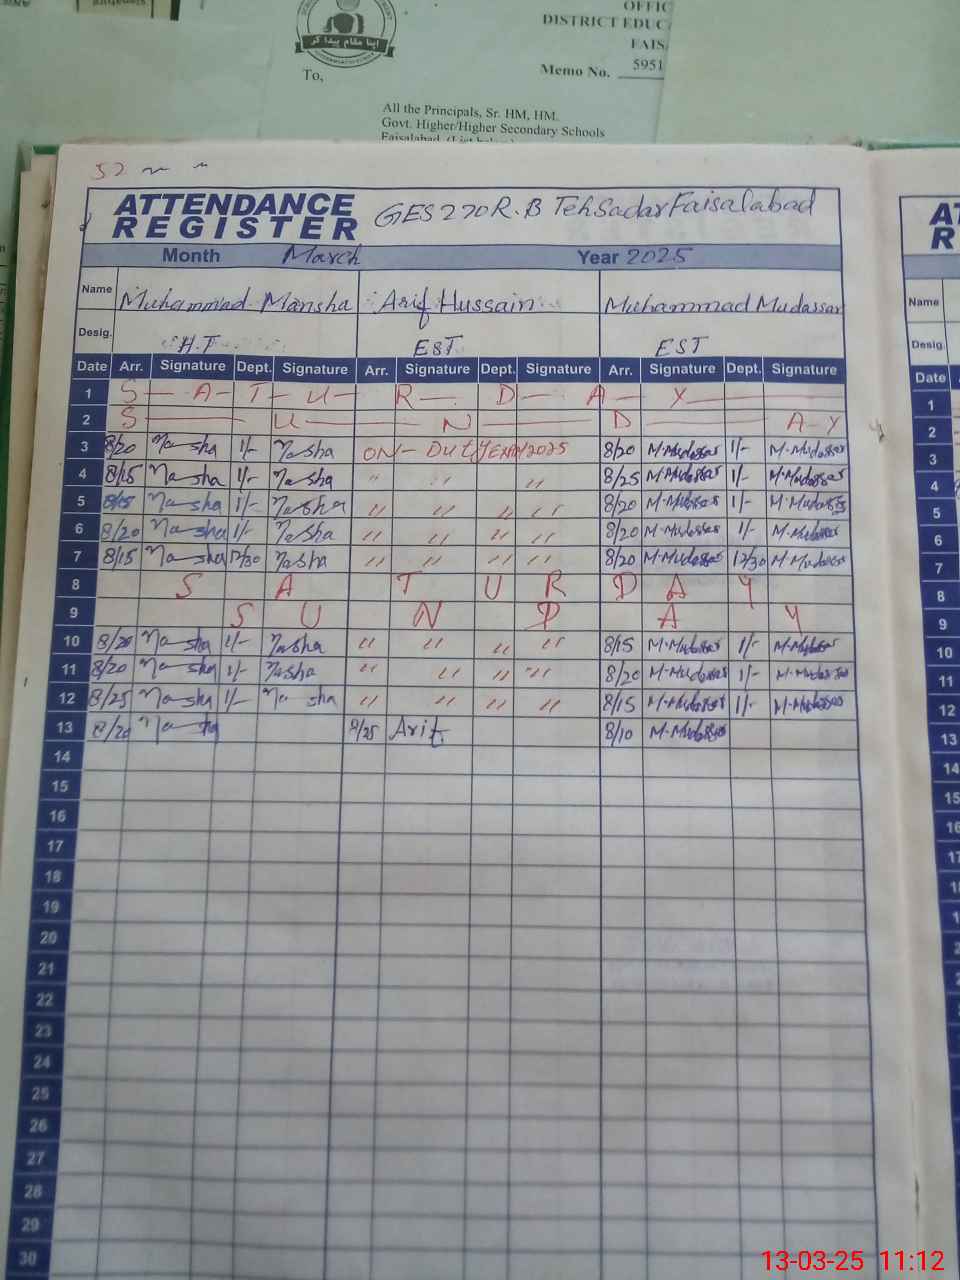 OFFIC
DISTRICT EDUC
FAIS
اپنا مقام پیدا کر
To,
Memo No. 5951
All the Principals, Sr. HM, HM.
Govt. Higher/Higher Secondary Schools
Faisalabad
52
ATTENDANCE REGISTER GES 270 R.B Teh Sadar Faisalabad
Month March Year 2025
Name Muhammad Mansha Arif Hussain Muhammad Mudassar
Desig. H.T EST EST
Date Arr. Signature Dept. Signature Arr. Signature Dept. Signature Arr. Signature Dept. Signature
1 S A T U R D A Y
2 S U N D A Y
3 8/20 Mansha 1/- Mansha ON - Duty 2025 8/20 M.Mudassar 1/- M.Mudassar
4 8/15 Mansha 1/- Mansha " " " 8/25 M.Mudassar 1/- M.Mudassar
5 8/15 Mansha 1/- Mansha " " " " 8/20 M.Mudassar 1/- M.Mudassar
6 8/20 Mansha 1/- Mansha " " " " 8/20 M.Mudassar 1/- M.Mudassar
7 8/15 Mansha 12/30 Mansha " " " " 8/20 M.Mudassar 12/30 M.Mudassar
8 S A T U R D A Y
9 S U N D A Y
10 8/20 Mansha 1/- Mansha " " " " 8/15 M.Mudassar 1/- M.Mudassar
11 8/20 Mansha 1/- Mansha " " " " 8/20 M.Mudassar 1/- M.Mudassar
12 8/25 Mansha 1/- Mansha " " " " 8/15 M.Mudassar 1/- M.Mudassar
13 8/20 Mansha 8/25 Arif 8/10 M.Mudassar
14
15
16
17
18
19
20
21
22
23
24
25
26
27
28
29
30
AT
R
Name
Desig.
Date
1
2
3
4
5
6
7
8
9
10
11
12
13
14
15
16
17
13-03-25 11:12